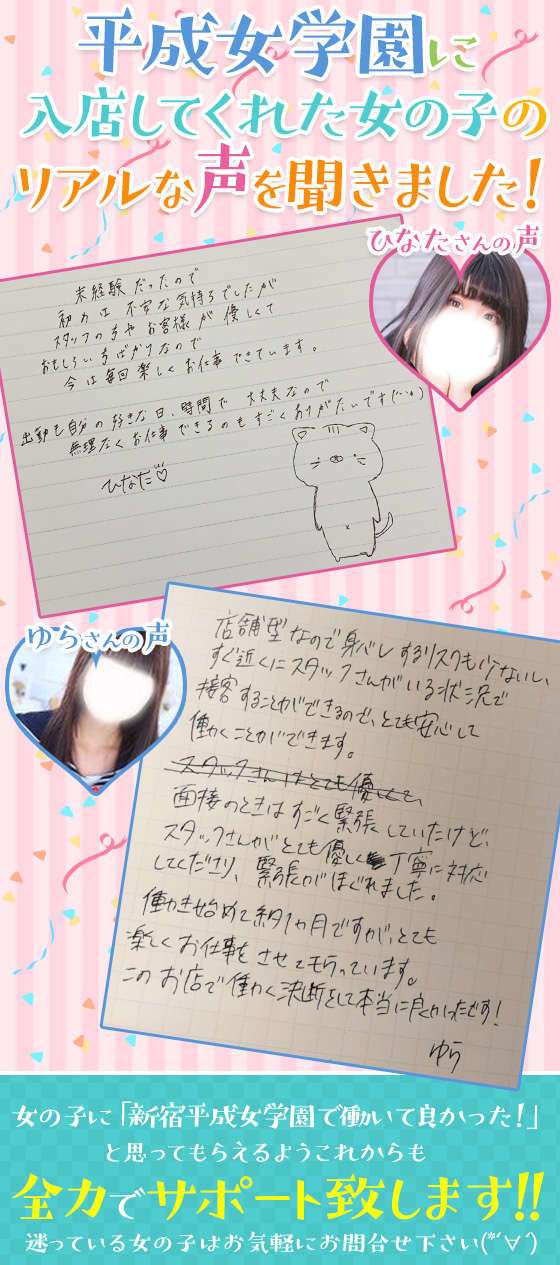 平成女学園に
入店してくれた女の子の
リアルな声を聞きました!
ひなたさんの声
未経験だったので
初めは不安な気持ちでしたが
スタッフの方やお客様が優しくて
おもしろい方ばかりなので
今は毎回楽しくお仕事できています。
出勤も自分の好きな日、時間で大丈夫なので
無理なくお仕事できるのもすごくありがたいです(・・)
ひなた♡
ゆらさんの声
店舗型なので身バレするリスクも少ないし、
すぐ近くにスタッフさんがいる状況で
接客することができるので、とても安心して
働くことができます。
スタッフさんはとても優しくて、
面接のときはすごく緊張していたけど、
スタッフさんがとても優しく丁寧に対応
してくださり、緊張がほぐれました。
働き始めて約1ヵ月ですが、とても
楽しくお仕事をさせてもらっています。
このお店で働く決断をして本当に良かったです!
ゆら
女の子に「新宿平成女学園で働いて良かった!」
と思ってもらえるようこれからも
全力でサポート致します!!
迷っている女の子はお気軽にお問合せ下さい(*´∀`)